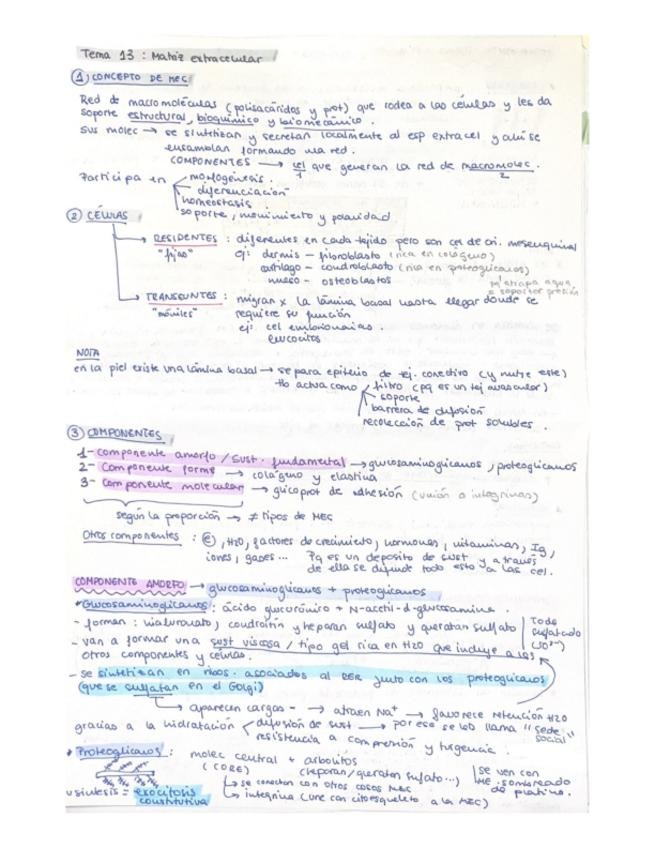 Tema 13 : Matriz extracelular
① CONCEPTO DE MEC
Red de macromoléculas (polisacáridos y prot) que rodea a las células y les da
soporte estructural, bioquímico y biomecánico.
Sus molec → se sintetizan y secretan localmente al esp extracel y ahí se
ensamblan formando una red.
COMPONENTES → cel que generan la red de macromolec.
1 2
Participa en morfogénesis.
diferenciación
homeostasis
soporte, movimiento y polaridad
② CÉLULAS
RESIDENTES : diferentes en cada tejido pero son cel de ori. mesenquimal
"fijas" ej: dermis – fibroblasto (rica en colágeno)
cartílago – condroblasto (rica en proteoglicanos)
hueso – osteoblastos
atrapa agua
soportar presión
TRANSEUNTES : migran x la lámina basal hasta llegar donde se
"móviles" requiere su función
ej: cel embrionarias
leucocitos
NOTA
en la piel existe una lámina basal → separa epitelio de tej. conectivo (y nutre este)
tb actúa como filtro (pq es un tej avascular)
soporte
barrera de difusión
recolección de prot solubles.
③ COMPONENTES
1- componente amorfo / sust. fundamental → glucosaminoglicanos, proteoglicanos
2- Componente forme → colágeno y elastina
3- Componente molecular → glicoprot de adhesión (unión a integrinas)
según la proporción → ≠ tipos de MEC
Otros componentes : e, H2O, factores de crecimiento, hormonas, vitaminas, Ig,
iones, gases... Pq es un deposito de sust y a través
de ella se difunde todo esto a las cel.
COMPONENTE AMORFO → glucosaminoglicanos + proteoglicanos
* Glucosaminoglicanos : ácido glucurónico + N-acetil-d-glucosamina.
- forman : hialuronato, condroitín y heparan sulfato y queratan sulfato
Todo sulfatado
- van a formar una sust viscosa / tipo gel rica en H2O que incluye a los
otros componentes y células.
- se sintetizan en ribos. asociados al RER junto con los proteoglicanos
(que se sulfatan en el Golgi)
→ aparecen cargas - → atraen Na+ → favorece retención H2O
gracias a la hidratación difusión de sust → por eso se los llama "sede social"
resistencia a compresión y turgencia.
* Proteoglicanos : molec central + arbolitos
(CORE) (heparan/queratan sulfato...) se ven con
ME. sombreado
de platino.
→ se conectan con otras cosas MEC
→ integrina (une con citoesqueleto a la MEC)
síntesis = exocitosis
constitutiva